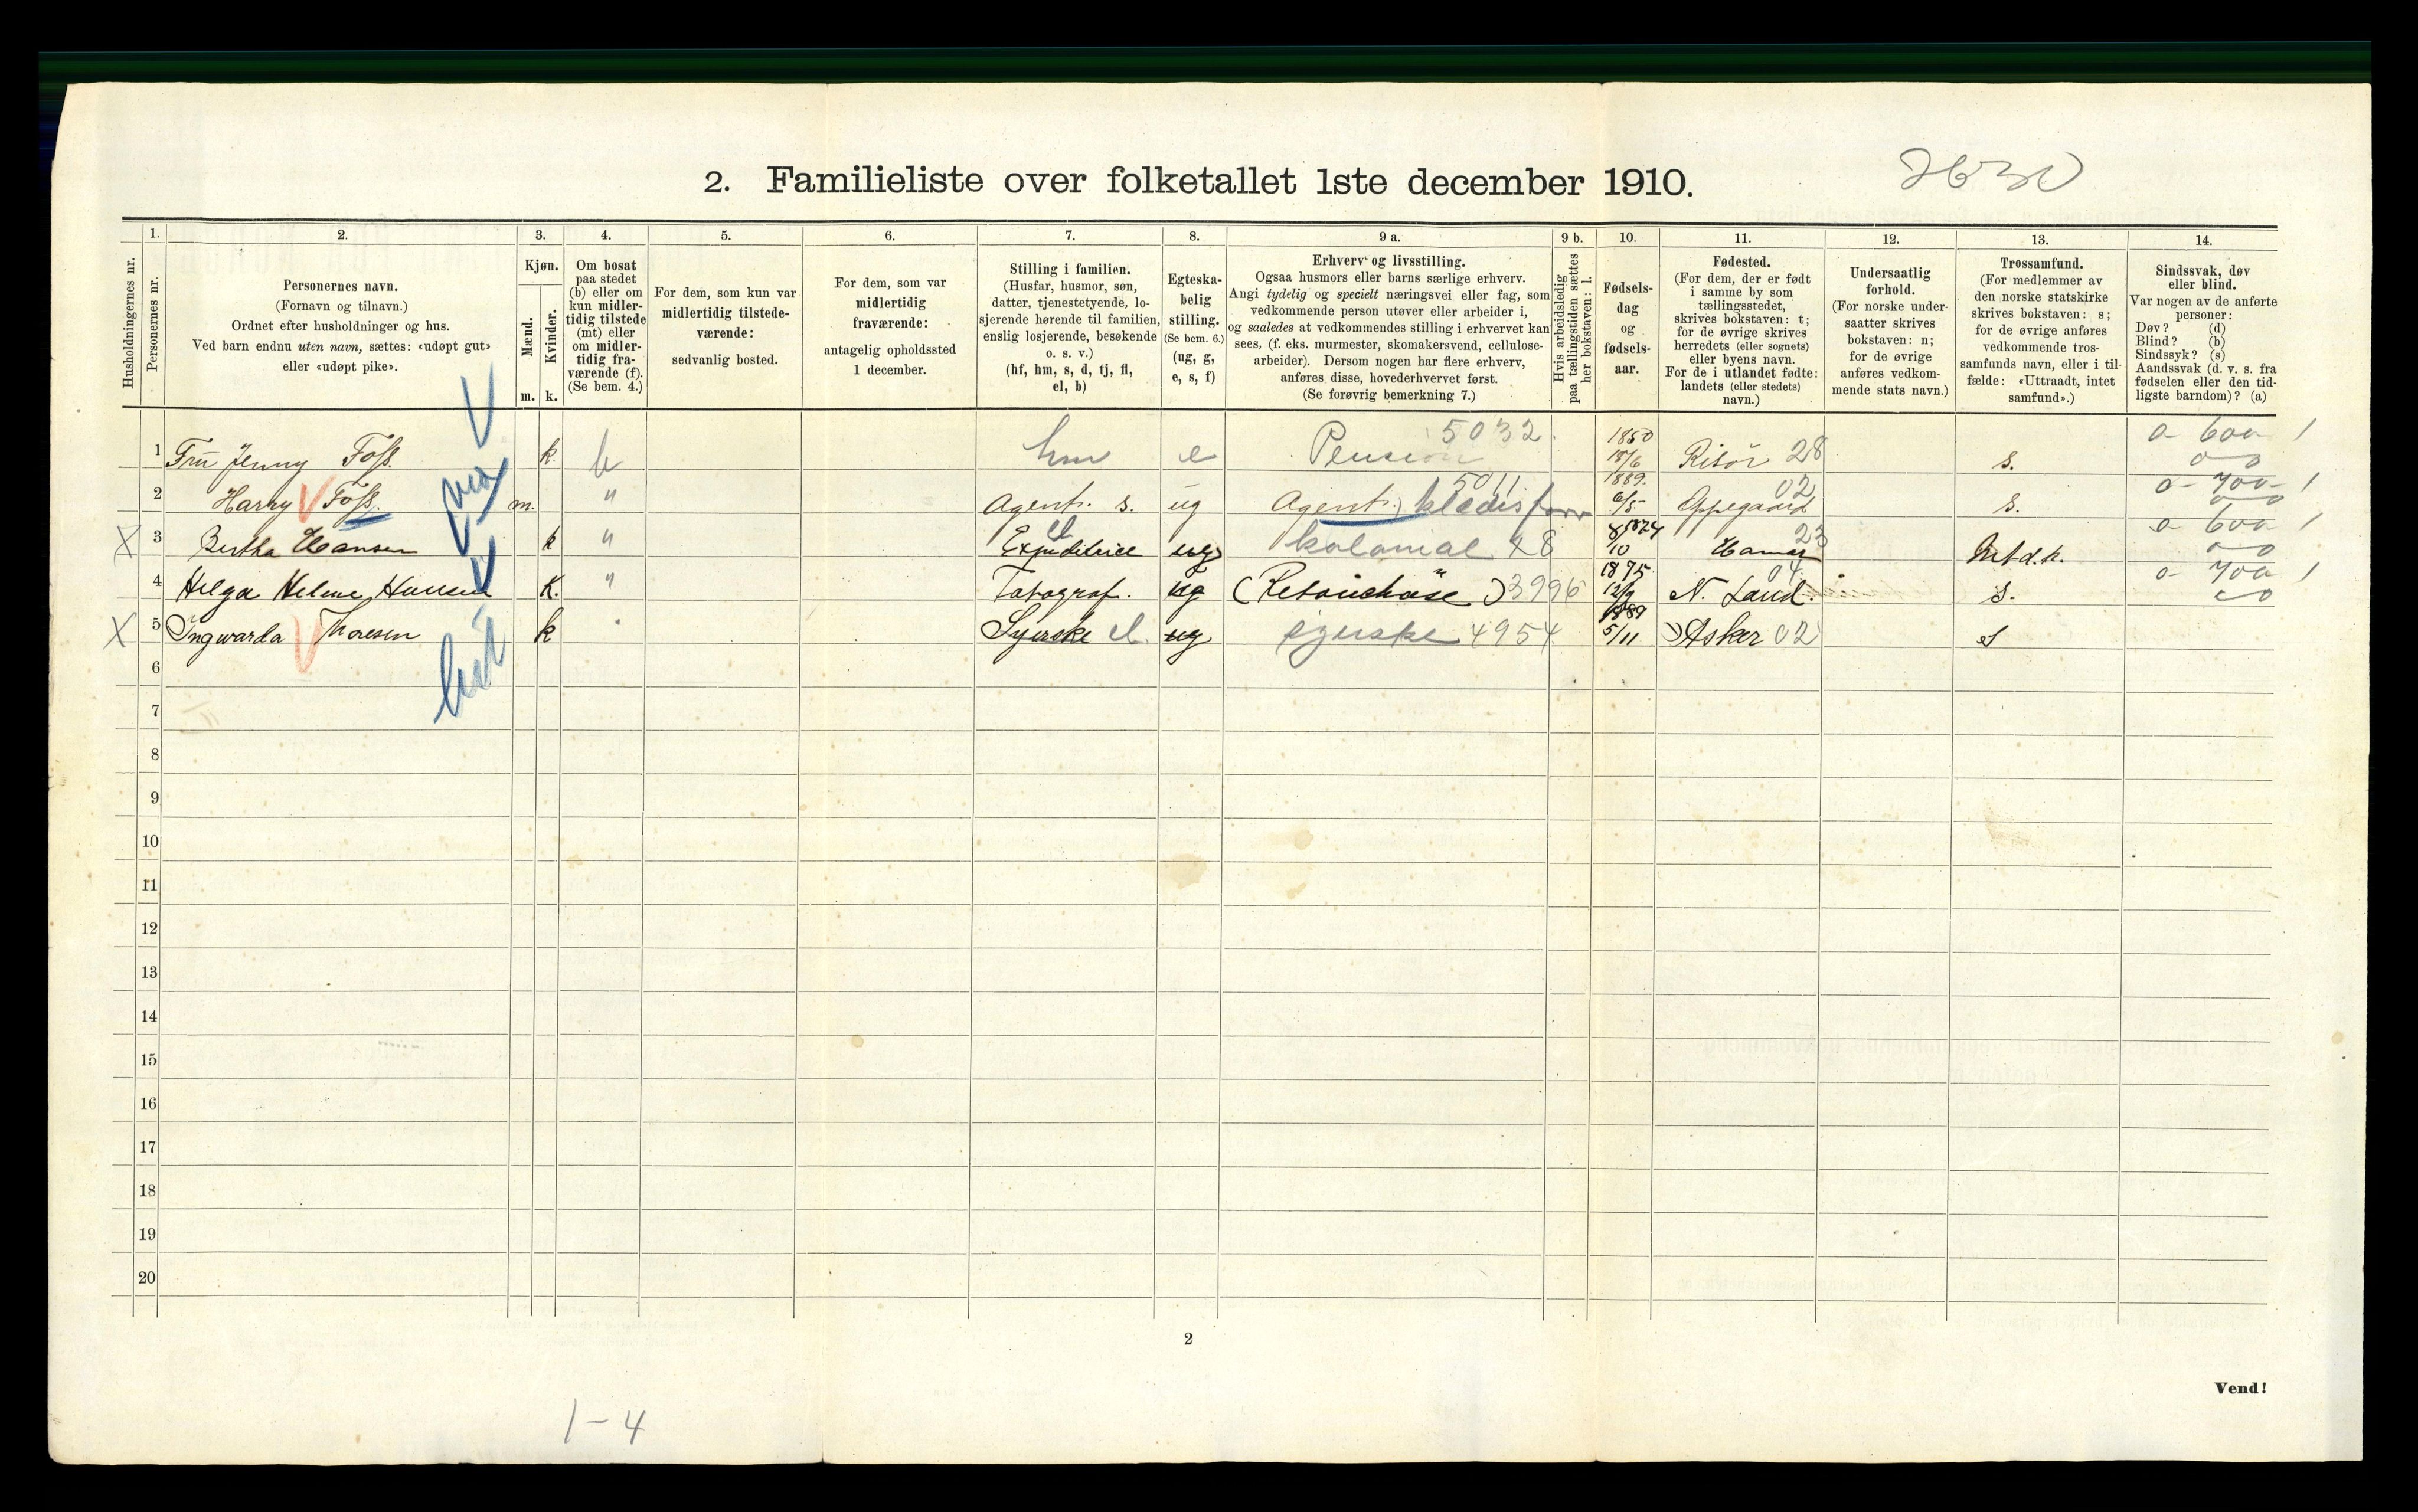 2. Familieliste over folketallet 1ste december 1910.
2630
1. 2. 3. 4. 5. 6. 7. 8. 9 a. 9 b. 10. 11. 12. 13. 14.
Husholdningernes nr.
Personernes nr.
Personernes navn.
(Fornavn og tilnavn.)
Ordnet efter husholdninger og hus.
Ved barn endnu uten navn, sættes: «udøpt gut»
eller «udøpt pike».
Kjøn.
Mænd.
Kvinder.
m. k.
Om bosat
paa stedet
(b) eller om
kun midler-
tidig tilstede
(mt) eller
om midler-
tidig fra-
værende (f).
(Se bem. 4.)
For dem, som kun var
midlertidig tilstede-
værende:
sedvanlig bosted.
For dem, som var
midlertidig
fraværende:
antagelig opholdssted
1 december.
Stilling i familien.
(Husfar, husmor, søn,
datter, tjenestetyende, lo-
sjerende hørende til familien,
enslig losjerende, besøkende
o. s. v.)
(hf, hm, s, d, tj, fl,
el, b)
Egteska-
belig
stilling.
(Se bem. 6.)
(ug, g,
e, s, f)
Erhverv og livsstilling.
Ogsaa husmors eller barns særlige erhverv.
Angi tydelig og specielt næringsvei eller fag, som
vedkommende person utøver eller arbeider i,
og saaledes at vedkommendes stilling i erhvervet kan
sees, (f. eks. murmester, skomakersvend, cellulose-
arbeider). Dersom nogen har flere erhverv,
anføres disse, hovederhvervet først.
(Se forøvrig bemerkning 7.)
Hvis arbeidsledig
paa tællingstiden sættes
her bokstaven: l.
Fødsels-
dag
og
fødsels-
aar.
Fødested.
(For dem, der er født
i samme by som
tællingsstedet,
skrives bokstaven: t;
for de øvrige skrives
herredets (eller sognets)
eller byens navn.
For de i utlandet fødte:
landets (eller stedets)
navn.)
Undersaatlig
forhold.
(For norske under-
saatter skrives
bokstaven: n;
for de øvrige
anføres vedkom-
mende stats navn.)
Trossamfund.
(For medlemmer av
den norske statskirke
skrives bokstaven: s;
for de øvrige anføres
vedkommende tros-
samfunds navn, eller i til-
fælde: «Uttraadt, intet
samfund».)
Sindssvak, døv
eller blind.
Var nogen av de anførte
personer:
Døv? (d)
Blind? (b)
Sindssyk? (s)
Aandssvak (d. v. s. fra
fødselen eller den tid-
ligste barndom)? (a)
1 Fru Jenny Foss. k. b hm e Pension 5032 1850 18/6 Risör 28 s. 0- 600 1
2 Harry Foss. m. " Agent. s. ug Agent. klædesforr 5011 1889. 6/5 Oppegaard 02 s. 0- 700- 1
X 3 Bertha Hansen k " Expeditrice el ug kolonial 48 8/10 1874 Hamar 23 Mtd.k. 0- 600 1
4 Helga Helene Hansen K. " Fotograf. ug (Retouchöse) 3996 1875 12/9 N. Land. 04 S. 0- 700 1
X 5 Ingwarda Thoresen k Syerske el. ug syerske 4954 1889 5/11 Asker 02 S
6
7
8
9
10
11
12
13
14
15
16
17
18
19
20
2
Vend!
1-4